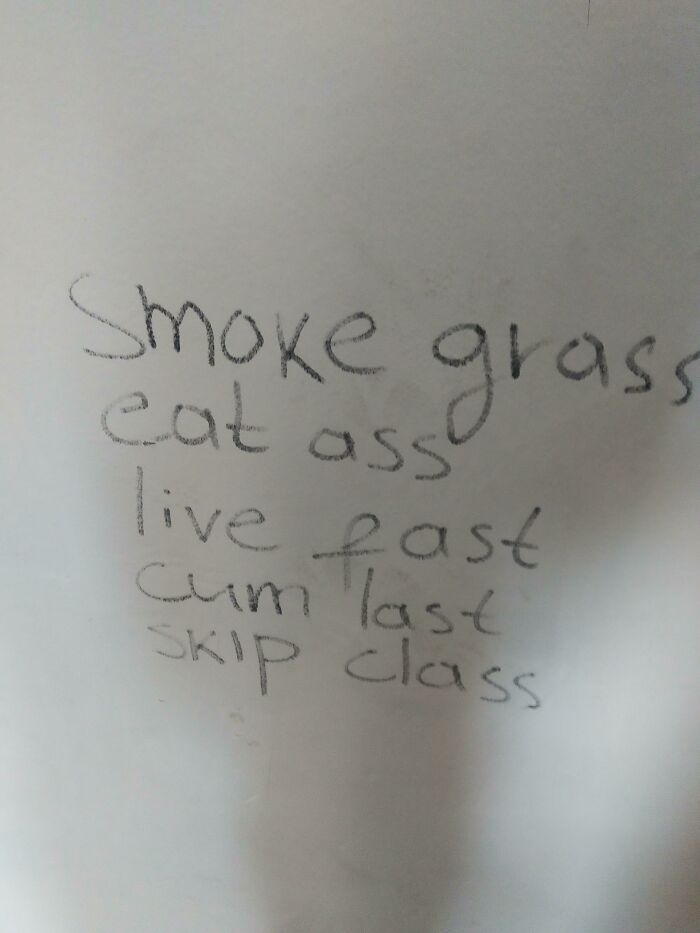 Smoke grass
eat ass
live fast
cum last
skip class